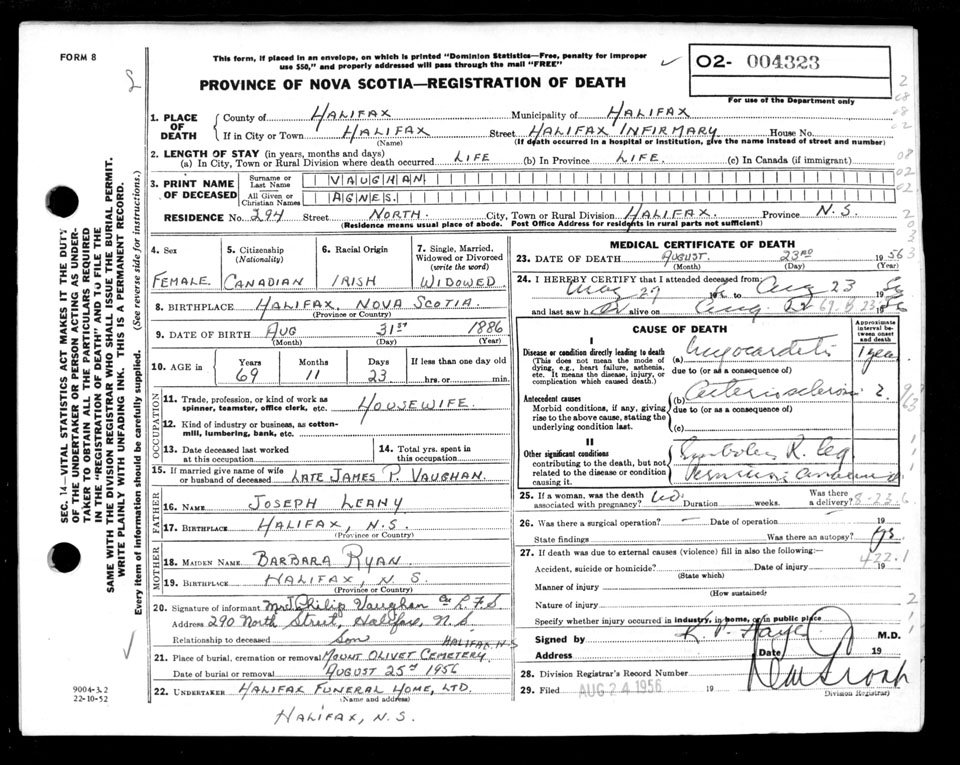 FORM 8
This form, if placed in an envelope, on which is printed "Dominion Statistics—Free, penalty for improper
use $50," and properly addressed will pass through the mail "FREE"
PROVINCE OF NOVA SCOTIA—REGISTRATION OF DEATH
O2- 004323
For use of the Department only
1. PLACE OF DEATH
County of HALIFAX Municipality of HALIFAX
If in City or Town HALIFAX Street HALIFAX INFIRMARY House No.
(Name) (If death occurred in a hospital or institution, give the name instead of street and number)
2. LENGTH OF STAY (in years, months and days)
(a) In City, Town or Rural Division where death occurred LIFE (b) In Province LIFE. (c) In Canada (if immigrant)
3. PRINT NAME OF DECEASED
Surname or Last Name VAUGHAN
All Given or Christian Names AGNES.
RESIDENCE No. 294 Street NORTH. City, Town or Rural Division HALIFAX. Province N.S.
(Residence means usual place of abode. Post Office Address for residents in rural parts not sufficient)
4. Sex
FEMALE
5. Citizenship
(Nationality)
CANADIAN
6. Racial Origin
IRISH
7. Single, Married,
Widowed or Divorced
(write the word)
WIDOWED
8. BIRTHPLACE HALIFAX, NOVA SCOTIA.
(Province or Country)
9. DATE OF BIRTH AUG 31ST 1886
(Month) (Day) (Year)
10. AGE in
Years Months Days If less than one day old
69 11 23 hrs. or min.
OCCUPATION
11. Trade, profession, or kind of work as
spinner, teamster, office clerk, etc. HOUSEWIFE.
12. Kind of industry or business, as cotton-
mill, lumbering, bank, etc.
13. Date deceased last worked
at this occupation
14. Total yrs. spent in
this occupation
15. If married give name of wife
or husband of deceased LATE JAMES P. VAUGHAN.
FATHER
16. NAME JOSEPH LEAHY
17. BIRTHPLACE HALIFAX, N.S.
(Province or Country)
MOTHER
18. MAIDEN NAME BARBARA RYAN
19. BIRTHPLACE HALIFAX, N.S.
(Province or Country)
20. Signature of informant Philip Vaughan
Address 290 North Street, Halifax, N.S.
Relationship to deceased Son
HALIFAX. N.S
21. Place of burial, cremation or removal MOUNT OLIVET CEMETERY.
Date of burial or removal AUGUST 25TH 1956
22. UNDERTAKER HALIFAX FUNERAL HOME, LTD.
(Name and address)
HALIFAX, N.S.
MEDICAL CERTIFICATE OF DEATH
23. DATE OF DEATH AUGUST. 23RD 1956
(Month) (Day) (Year)
24. I HEREBY CERTIFY that I attended deceased from
27 to Aug 23 1956
and last saw h alive on Aug 19
CAUSE OF DEATH
Approximate interval between onset and death
I
Disease or condition directly leading to death
(This does not mean the mode of
dying, e.g., heart failure, asthenia,
etc. It means the disease, injury, or
complication which caused death.)
(a) Myocarditis 1 year
due to (or as a consequence of)
Antecedent causes
Morbid conditions, if any, giving
rise to the above cause, stating the
underlying condition last.
(b) Arteriosclerosis ?
due to (or as a consequence of)
(c)
II
Other significant conditions
contributing to the death, but not
related to the disease or condition
causing it.
Embolus R. leg
25. If a woman, was the death
associated with pregnancy? No. Duration weeks.
Was there
a delivery?
8-23-6
26. Was there a surgical operation? — Date of operation 19
State findings Was there an autopsy?
27. If death was due to external causes (violence) fill in also the following:—
422.1
Accident, suicide or homicide? Date of injury 19
(State which)
Manner of injury
(How sustained)
Nature of injury
Specify whether injury occurred in industry, in home, or in public place
Signed by M.D.
Address Date 19
28. Division Registrar's Record Number
29. Filed AUG 24 1956 19
(Division Registrar)
SEC. 14—VITAL STATISTICS ACT MAKES IT THE DUTY
OF THE UNDERTAKER OR PERSON ACTING AS UNDER-
TAKER TO OBTAIN ALL THE PARTICULARS REQUIRED
IN THE "REGISTRATION OF DEATH" AND TO FILE THE
SAME WITH THE DIVISION REGISTRAR WHO SHALL ISSUE THE BURIAL PERMIT.
WRITE PLAINLY WITH UNFADING INK. THIS IS A PERMANENT RECORD.
Every item of information should be carefully supplied. (See reverse side for instructions.)
9004-3.2
22-10-52